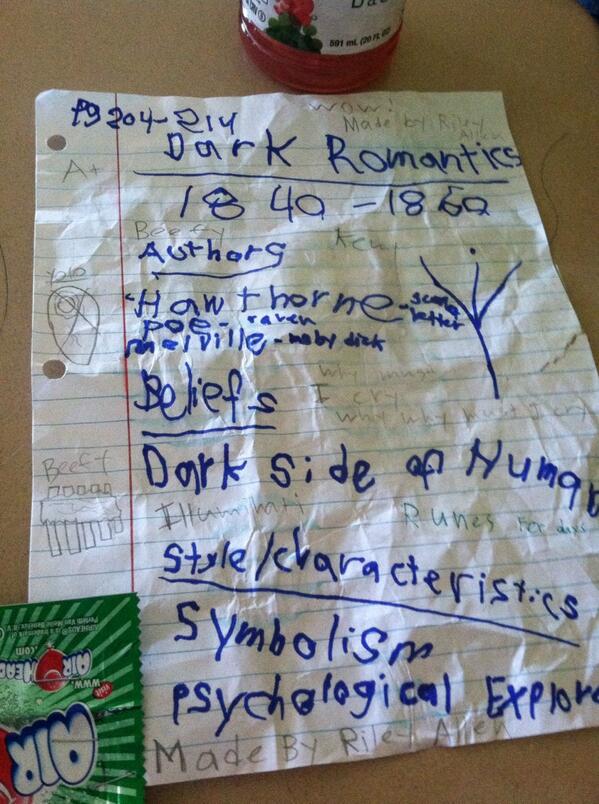 591 mL (20 FL OZ
wow!
Pg 204-214
Made by Riley
Allen
Dark Romantics
A+
1840-1860
Beefy
Authors
Yolo
Hawthorne-
letter
poe-raven
melville-moby dick
why must
Beliefs
I cry
why why must I cry
Dark side of Human
Beefy
Illuminati
Runes For days
Style/characteristics
Symbolism
psychological Explora
Made By Riley Allen
www.
AIRHEADS
.com
AIR